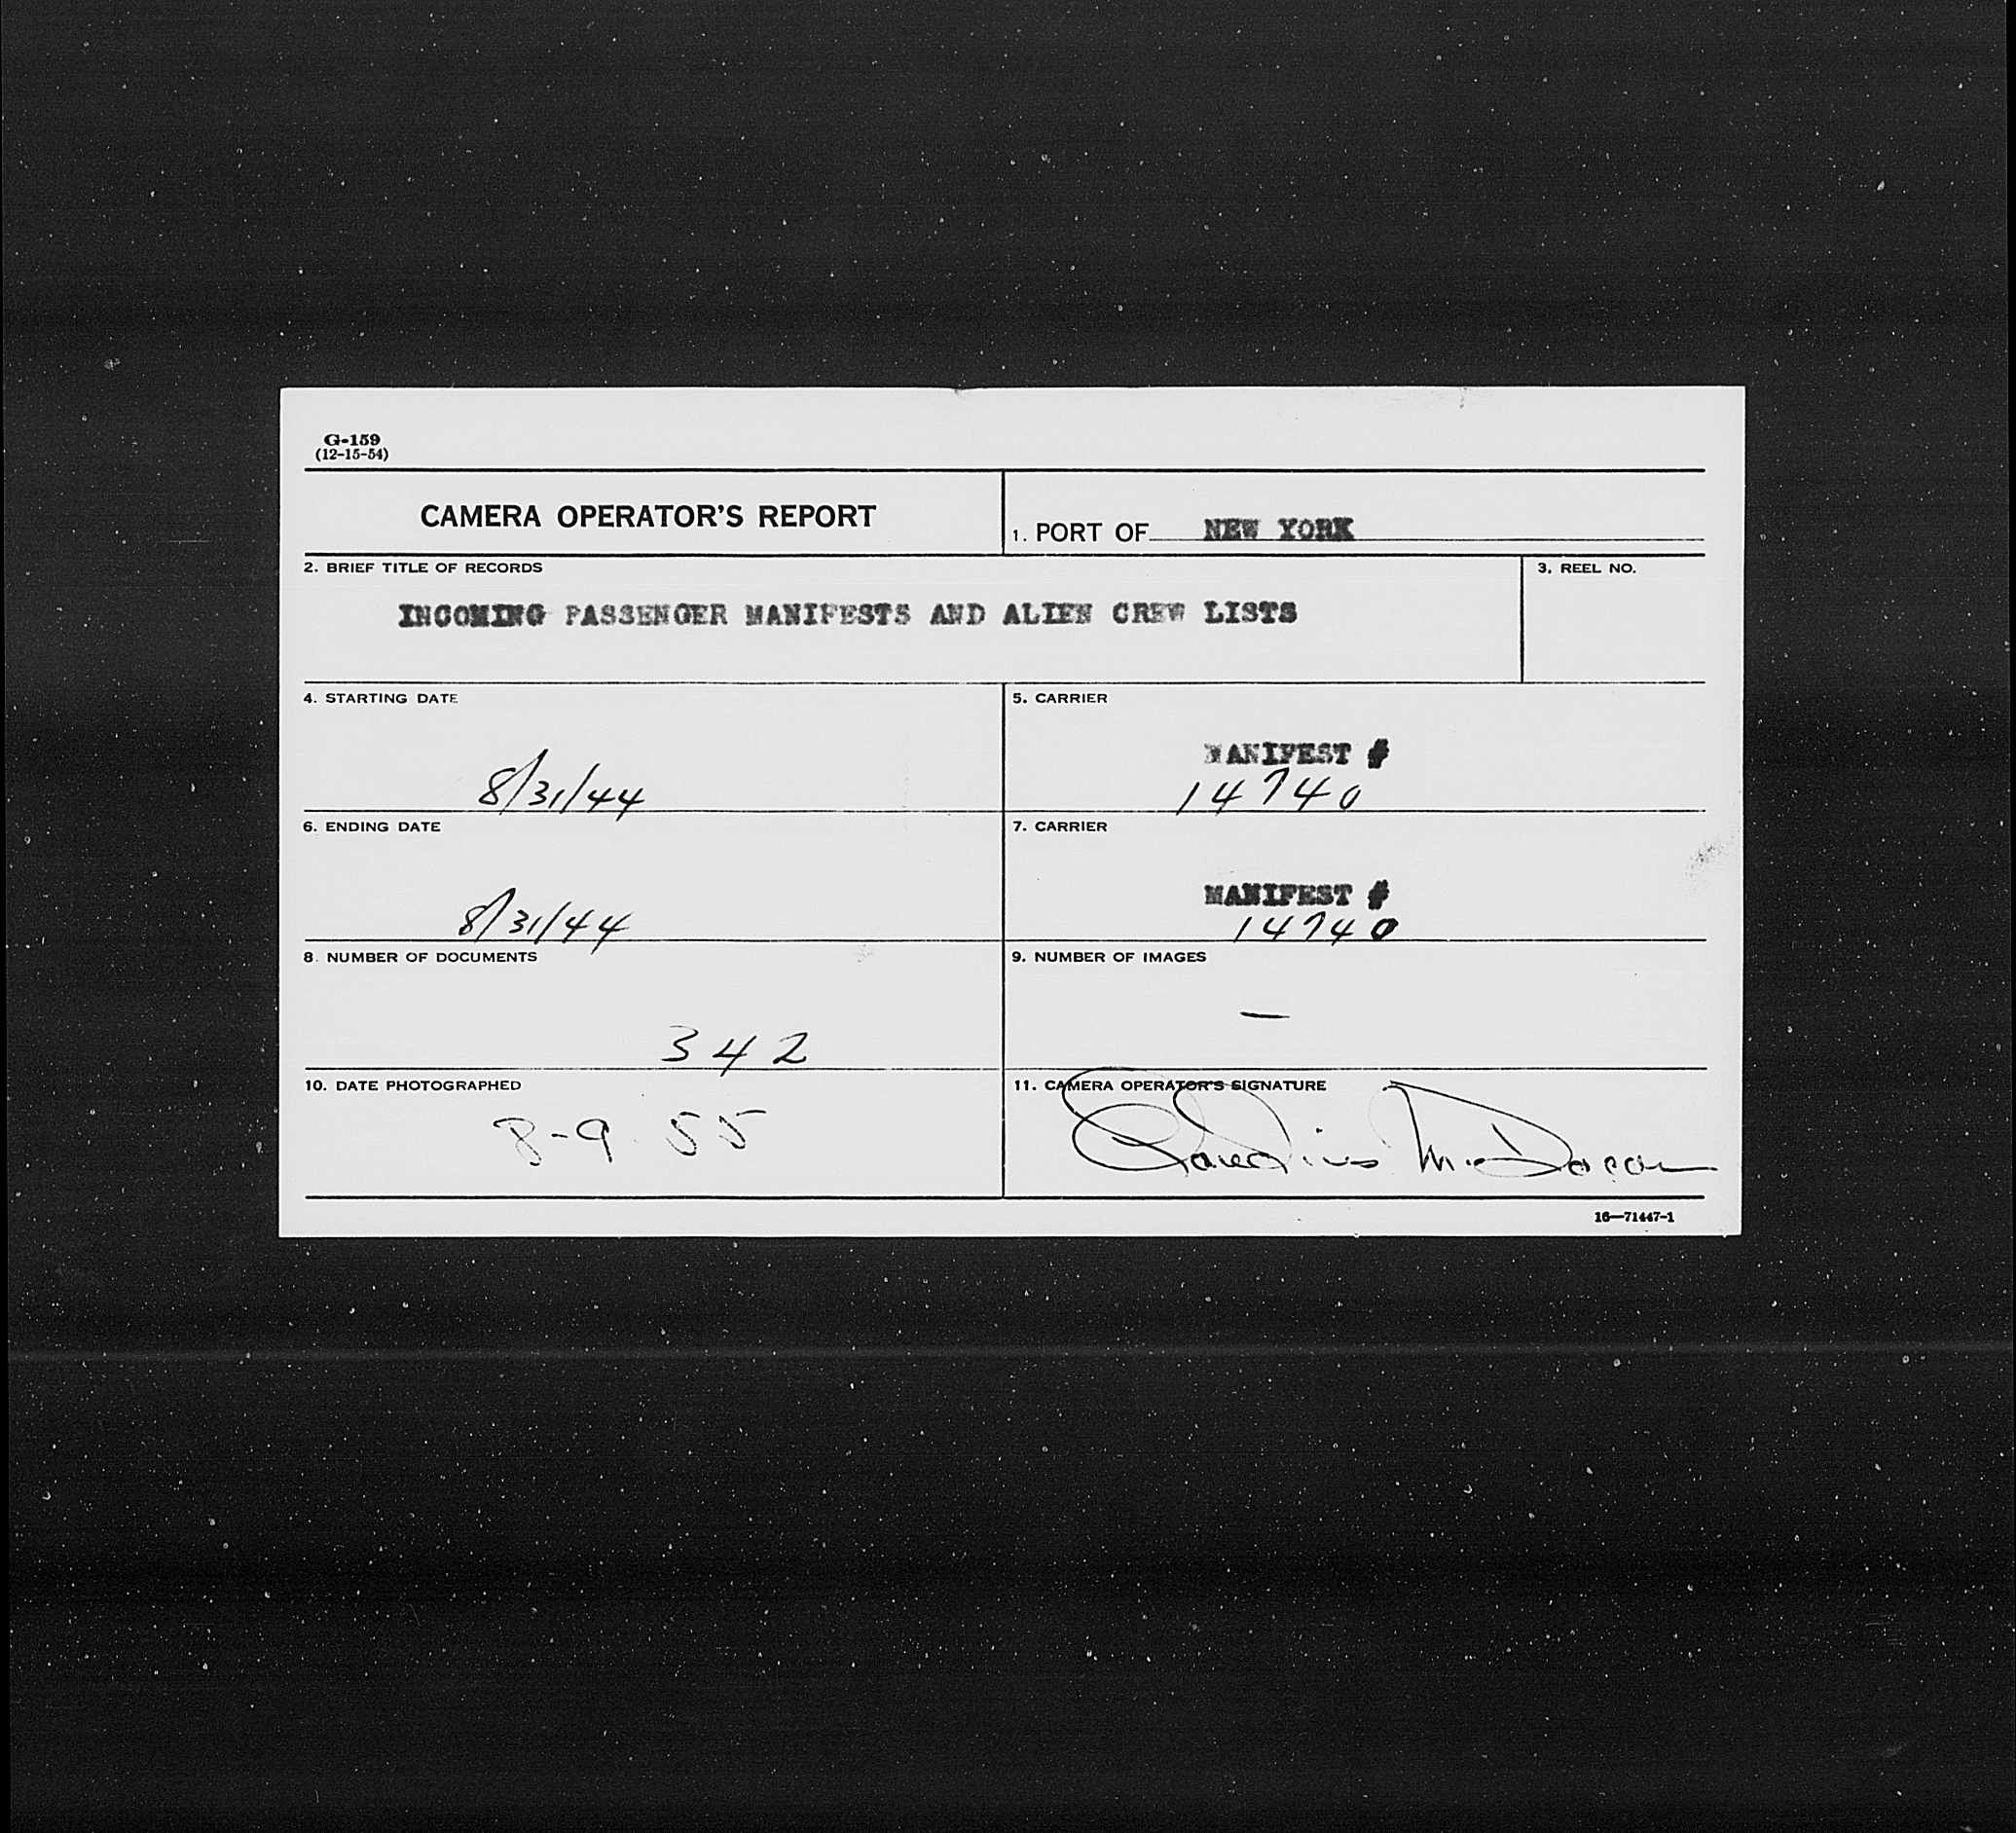 G-159
(12-15-54)
CAMERA OPERATOR'S REPORT
1. PORT OF NEW YORK
2. BRIEF TITLE OF RECORDS
3. REEL NO.
INCOMING PASSENGER MANIFESTS AND ALIEN CREW LISTS
4. STARTING DATE
8/31/44
5. CARRIER
MANIFEST #
14740
6. ENDING DATE
8/31/44
7. CARRIER
MANIFEST #
14740
8. NUMBER OF DOCUMENTS
342
9. NUMBER OF IMAGES
—
10. DATE PHOTOGRAPHED
8-9-55
11. CAMERA OPERATOR'S SIGNATURE
Claudius M.
16—71447-1